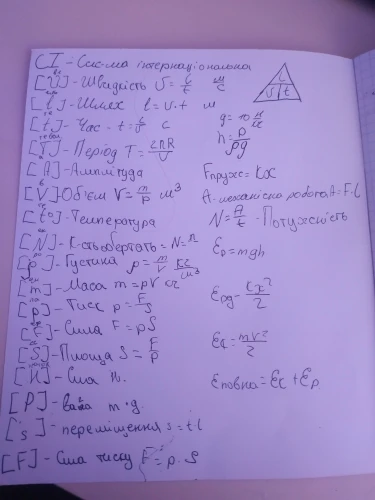 СІ - Система інтернаціональна
[V] - Швидкість V = l/t м/с
[l] - Шлях l = v · t м
[t] - Час - t = l/v с
[T] - Період T = 2πR/v
[A] - Амплітуда
[V] - Об'єм V = m/ρ м³
[t°] - Температура
[N] - К-сть обертать = N = n
[ρ] - Густина ρ = m/V кг/м³
[m] - Маса m = ρV кг
[p] - Тиск p = F/S
[F] - Сила F = pS
[S] - Площа S = F/p
[H] - Сила Н.
[P] - вага m · g.
[s] - переміщення s = tl
[F] - Сила тиску F = p · S
l
v | t
g = 10 Н/кг
h = p/ρg
Fпруж = kx
A - механічна робота A = F · l
N = A/t - Потужність
Ep = mgh
Epg = kx²/2
Ek = mv²/2
Eповна = Ek + Ep